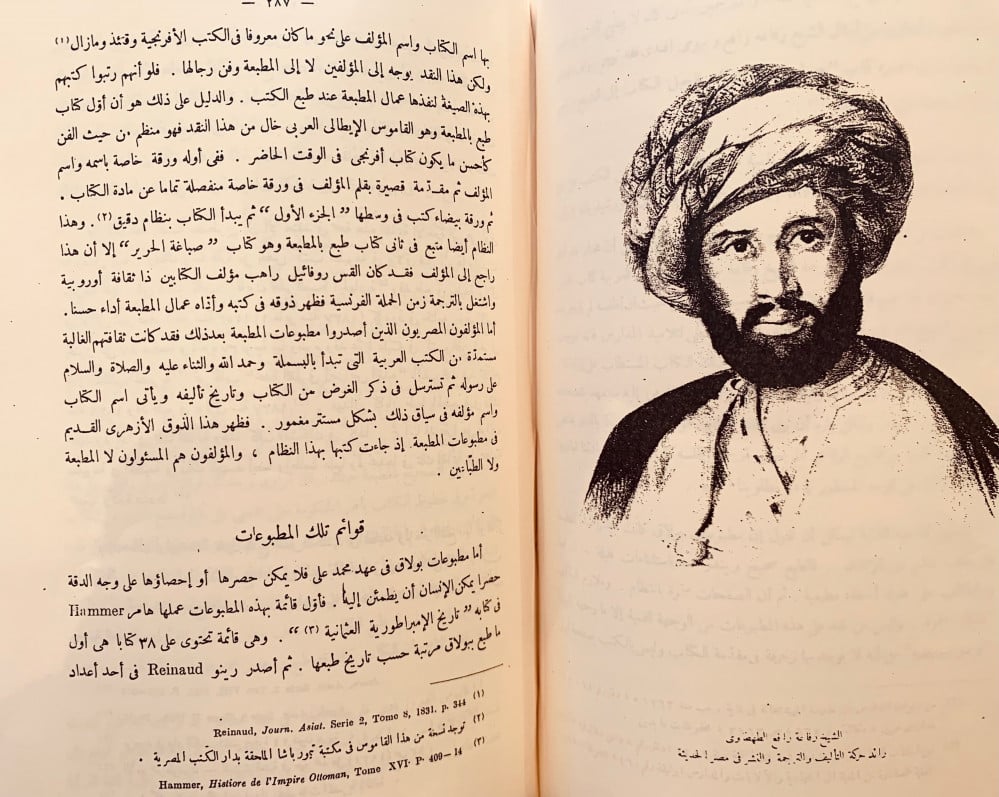 — ٢٨٧ —
بها اسم الكتاب واسم المؤلف على نحو ما كان معروفا فى الكتب الأفرنجية وقتئذ ومازال (١)
ولكن هذا النقد يوجه إلى المؤلفين لا إلى المطبعة وفن رجالها . فلو أنهم رتبوا كتبهم
بهذه الصيغة لنفذها عمال المطبعة عند طبع الكتب . والدليل على ذلك هو أن أول كتاب
طبع بالمطبعة وهو القاموس الإيطالى العربى خال من هذا النقد فهو منظم من حيث الفن
كأحسن ما يكون كتاب أفرنجى فى الوقت الحاضر . ففى أوله ورقة خاصة باسمه واسم
المؤلف ثم مقدمة قصيرة بقلم المؤلف فى ورقة خاصة منفصلة تماما عن مادة الكتاب .
ثم ورقة بيضاء كتب فى وسطها ”الجزء الأول“ ثم يبدأ الكتاب بنظام دقيق (٢) . وهذا
النظام أيضا متبع فى ثانى كتاب طبع بالمطبعة وهو كتاب ”صباغة الحرير“ إلا أن هذا
راجع إلى المؤلف فقد كان القس روفائيل راهب مؤلف الكتابين ذا ثقافة أوروبية
واشتغل بالترجمة زمن الحملة الفرنسية فظهر ذوقه فى كتبه وأداه عمال المطبعة أداء حسنا .
أما المؤلفون المصريون الذين أصدروا مطبوعات المطبعة بعد ذلك فقد كانت ثقافتهم الغالبة
مستمدة من الكتب العربية التى تبدأ بالبسملة وحمد الله والثناء عليه والصلاة والسلام
على رسوله ثم تسترسل فى ذكر الغرض من الكتاب وتاريخ تأليفه ويأتى اسم الكتاب
واسم مؤلفه فى سياق ذلك بشكل مستتر مغمور . فظهر هذا الذوق الأزهرى القديم
فى مطبوعات المطبعة إذ جاءت كتبها بهذا النظام ، والمؤلفون هم المسئولون لا المطبعة
ولا الطباعين .
قوائم تلك المطبوعات
أما مطبوعات بولاق فى عهد محمد على فلا يمكن حصرها أو إحصاؤها على وجه الدقة
حصرا يمكن الإنسان أن يطمئن إليه . فأول قائمة بهذه المطبوعات عملها هامر Hammer
فى كتابه ”تاريخ الإمبراطورية العثمانية (٣)“ . وهى قائمة تحتوى على ٣٨ كتابا هى أول
ما طبع ببولاق مرتبة حسب تاريخ طبعها . ثم أصدر رينو Reinaud فى أحد أعداد
(١) Reinaud, Journ. Asiat. Serie 2, Tome 8, 1831. p. 344
(٢) توجد نسخة من هذا القاموس فى مكتبة تيمور باشا الملحقة بدار الكتب المصرية .
(٣) Hammer, Histiore de l'Impire Ottoman, Tome XVI. P. 400-14
الشيخ رفاعة رافع الطهطاوى
رائد حركة التأليف والترجمة والنشر فى مصر الحديثة